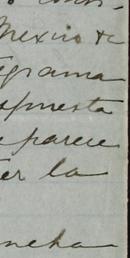 Mexico &c
grama
spuesta
parece
er la
ncha